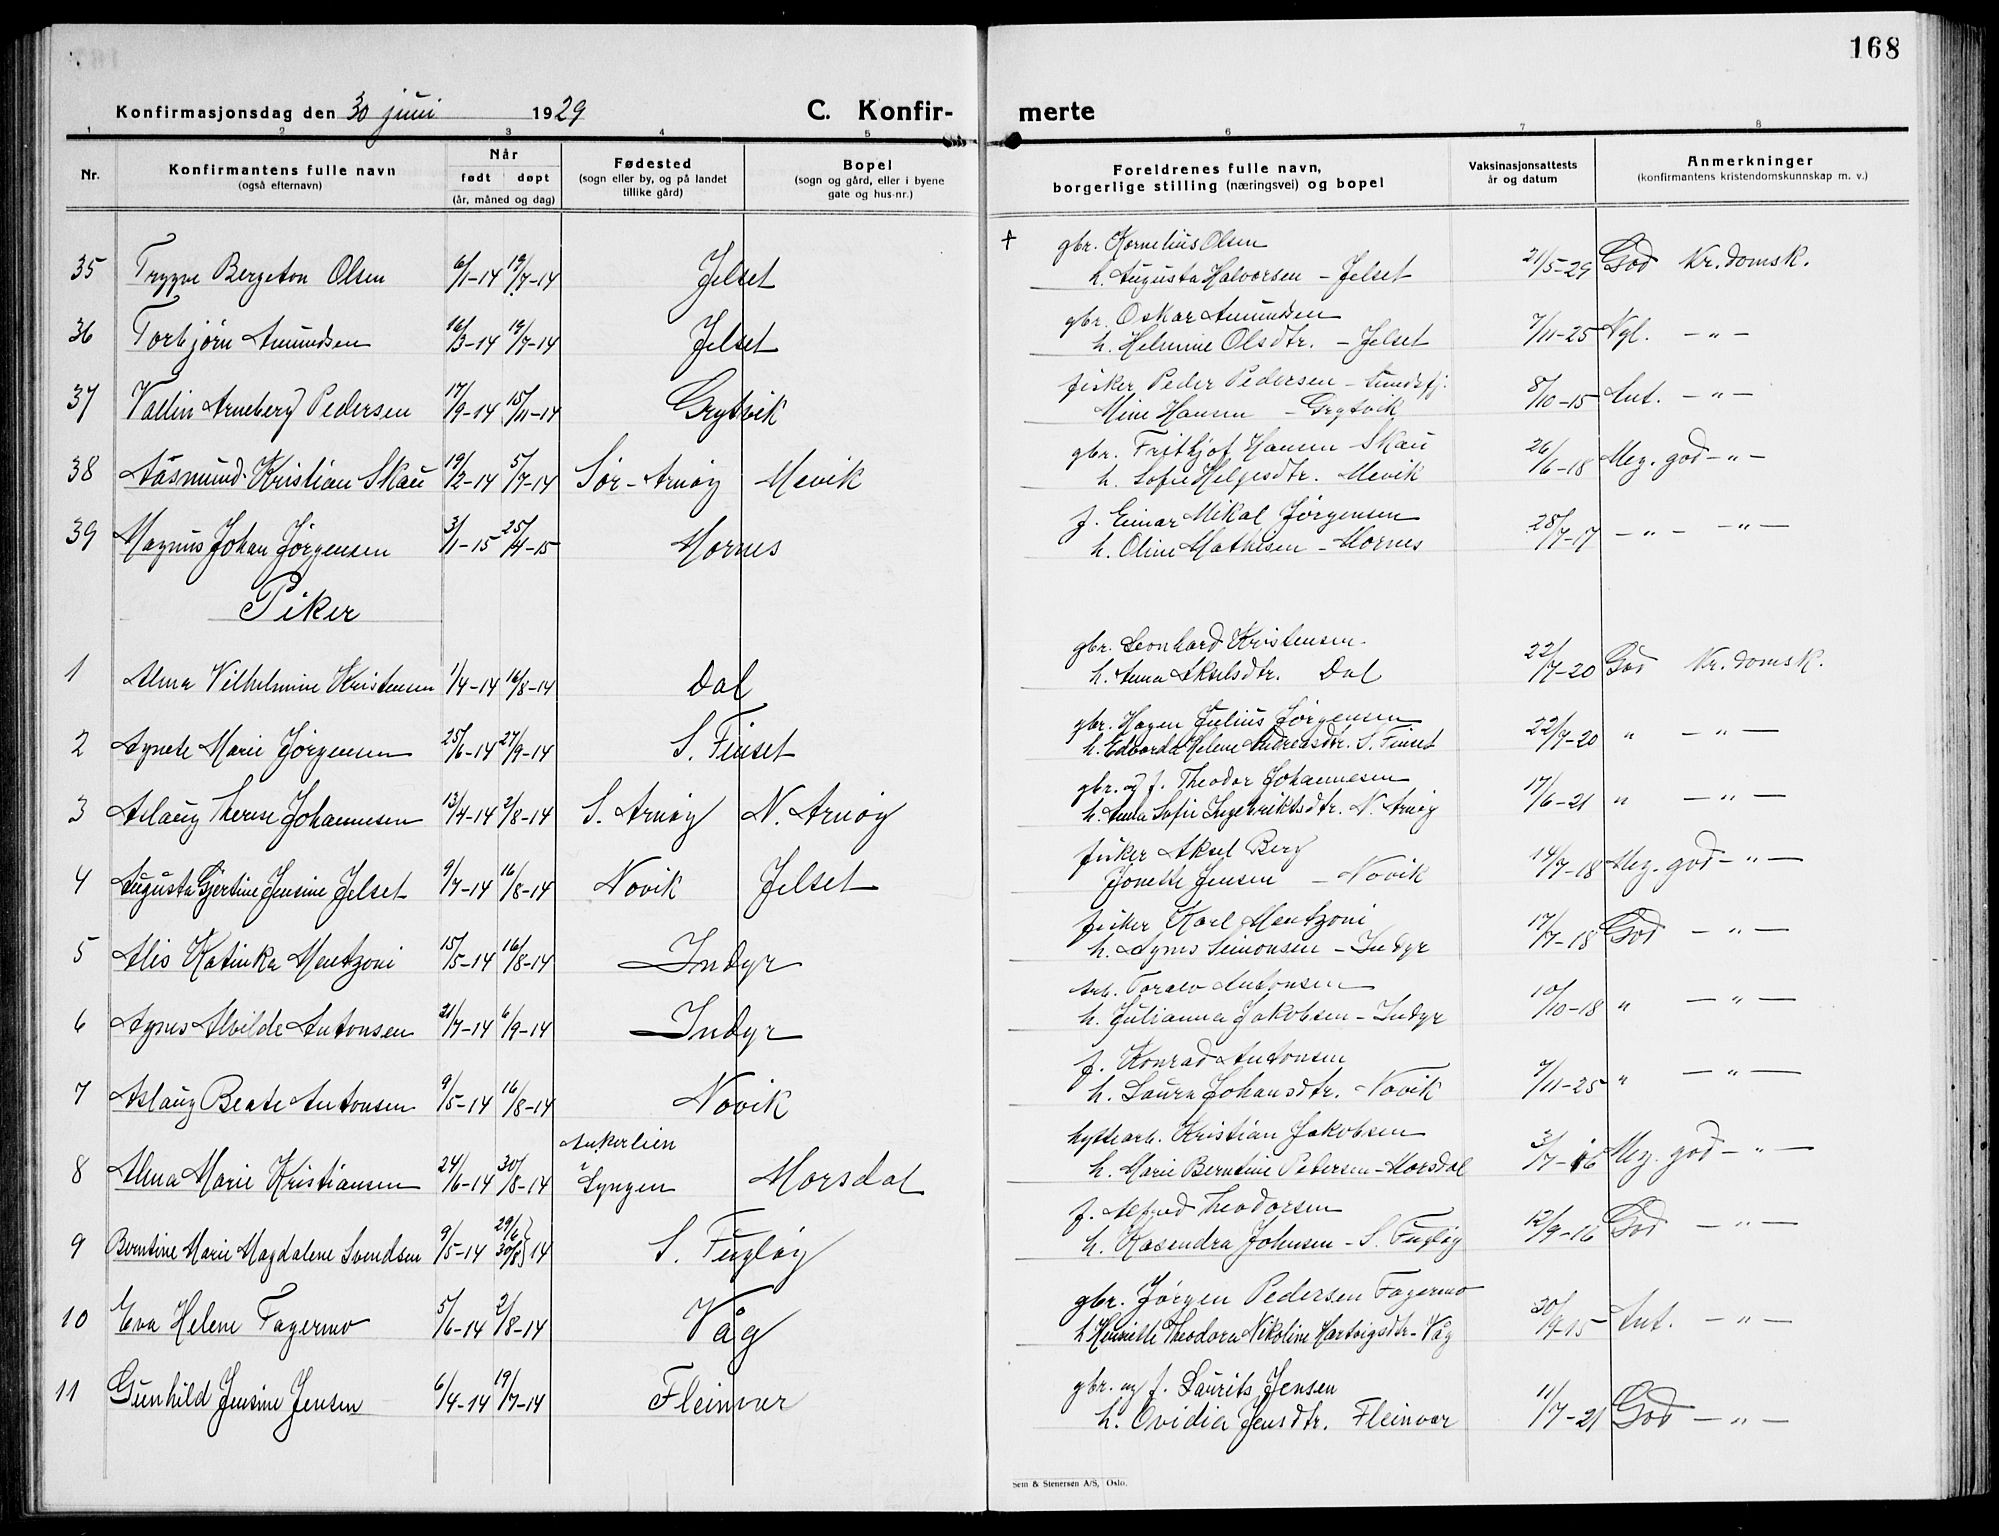 168
Konfirmasjonsdag den 30 juni 1929 C. Konfir- merte
1 2 3 4 5 6 7 8
Nr.
Konfirmantens fulle navn
(også efternavn)
Når
født døpt
(år, måned og dag)
Fødested
(sogn eller by, og på landet
tillike gård)
Bopel
(sogn og gård, eller i byene
gate og hus-nr.)
Foreldrenes fulle navn,
borgerlige stilling (næringsvei) og bopel
Vaksinasjonsattests
år og datum
Anmerkninger
(konfirmantens kristendomskunnskap m. v.)
+ gbr. Kornelius Olsen
35 Trygve Bergeton Olsen 6/1-14 19/7-14 Jelset h. Augusta Halvorsen - Jelset 21/5-29 God Kr. domsk.
gbr. Oskar Amundsen
36 Torbjørn Amundsen 16/3-14 19/7-14 Jelset h. Helmine Olsdtr. - Jelset 7/11-25 Ngl. - " -
fisker Peder Pedersen - Sundsfj.
37 Vallin Arneberg Pedersen 17/9-14 15/11-14 Grytvik Mine Hansen - Grytvik 8/10-15 Ant. - " -
gbr. Frithjof Hansen Skau
38 Aasmund Kristian Skau 19/2-14 5/7-14 Sør-Arnøy Mevik h. Sofie Helgesdtr. Mevik 26/6-18 Meg. god - " -
f. Einar Mikal Jørgensen
39 Magnus Johan Jørgensen 3/1-15 25/4-15 Hornes h. Oline Mathisen - Hornes 28/7-17 - " - - " -
Piker
gbr. Leonhard Kristensen
1 Alma Vilhelmine Kristensen 1/4-14 16/8-14 Dal h. Anna Akselsdtr. Dal 22/7-20 God Kr. domsk.
gbr. Hagen Julius Jørgensen
2 Agnete Marie Jørgensen 25/6-14 27/9-14 S. Finset h. Edvarda Helene Andreasdtr. S. Finset 22/7-20 " - " -
gbr. og f. Theodor Johannesen
3 Aslaug Therese Johannesen 13/4-14 2/8-14 S. Arnøy N. Arnøy h. Anna Sofie Ingebriktsdtr. N. Arnøy 17/6-21 " - " -
fisker Aksel Berg
4 Augusta Gjertine Jensine Jelset 9/7-14 16/8-14 Novik Jelset Jonette Jensen - Novik 14/7-18 Meg. god - " -
fisker Karl Mentzoni
5 Alis Katinka Mentzoni 15/5-14 16/8-14 Indyr h. Agnes Simonsen - Indyr 17/7-18 God - " -
arb. Toralv Antonsen
6 Agnes Alvilde Antonsen 21/7-14 6/9-14 Indyr h. Julianna Jakobsen - Indyr 10/10-18 " - " -
f. Konrad Antonsen
7 Aslaug Beate Antonsen 9/5-14 16/8-14 Novik h. Laura Johansdtr. Novik 7/11-25 " - " -
Ankerlien hyttearb. Kristian Jakobsen
8 Alma Marie Kristiansen 24/6-14 30/8-14 i Lyngen Morsdal h. Marie Berntine Petersen - Morsdal 3/7-16 Meg. god - " -
f. Alfred Theodorsen
9 Berntine Marie Magdalene Svendsen 9/5-14 29/6 30/8}14 S. Fugløy h. Kasendra Johnsen - S. Fugløy 12/9-16 God - " -
gbr. Jørgen Pedersen Fagermo
10 Eva Helene Fagermo 5/6-14 2/8-14 Våg h. Henriette Theodora Nikoline Hartvigsdtr - Våg 30/9-15 Ant. - " -
gbr. og f. Laurits Jensen
11 Gunhild Jensine Jensen 6/4-14 19/7-14 Fleinvær h. Ovidia Jensdtr. Fleinvær 11/7-21 God - " -
Sem & Stenersen A/S, Oslo.